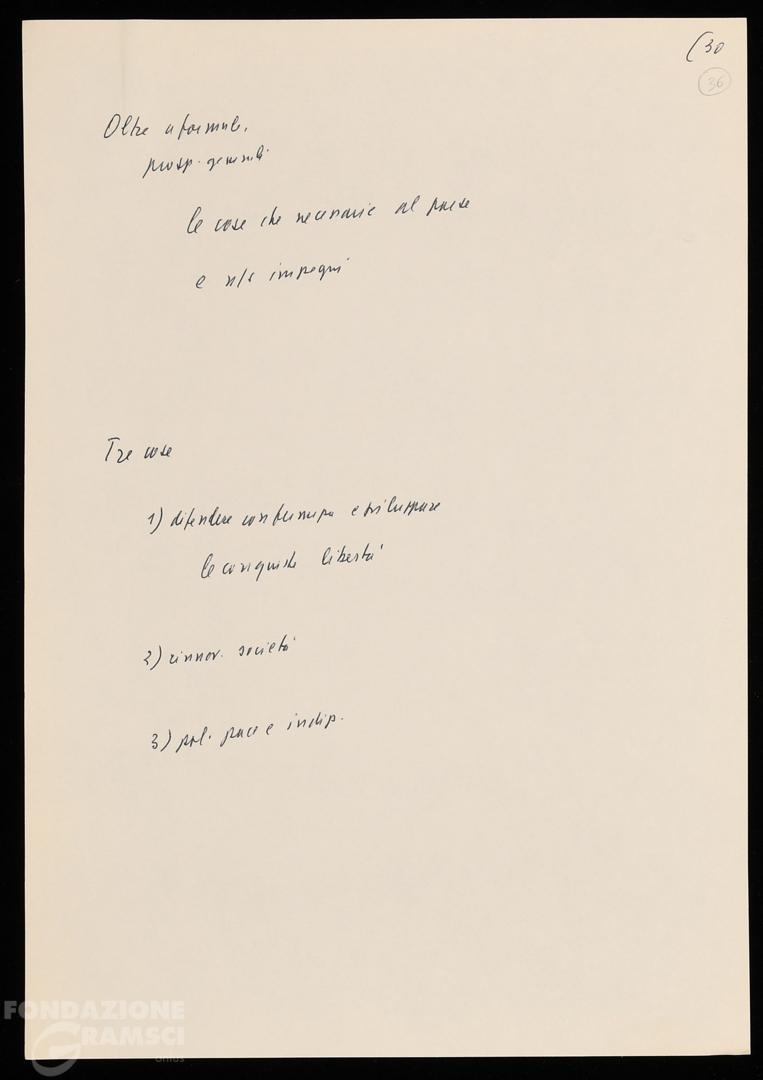 (30
36
Oltre a formule,
prosp. generali
le cose che necessarie al paese
e n/s impegni
Tre cose
1) difendere e sviluppare
le conquiste libertà
2) rinnov. società
3) pol. pace e indip.
FONDAZIONE
GRAMSCI
onlus